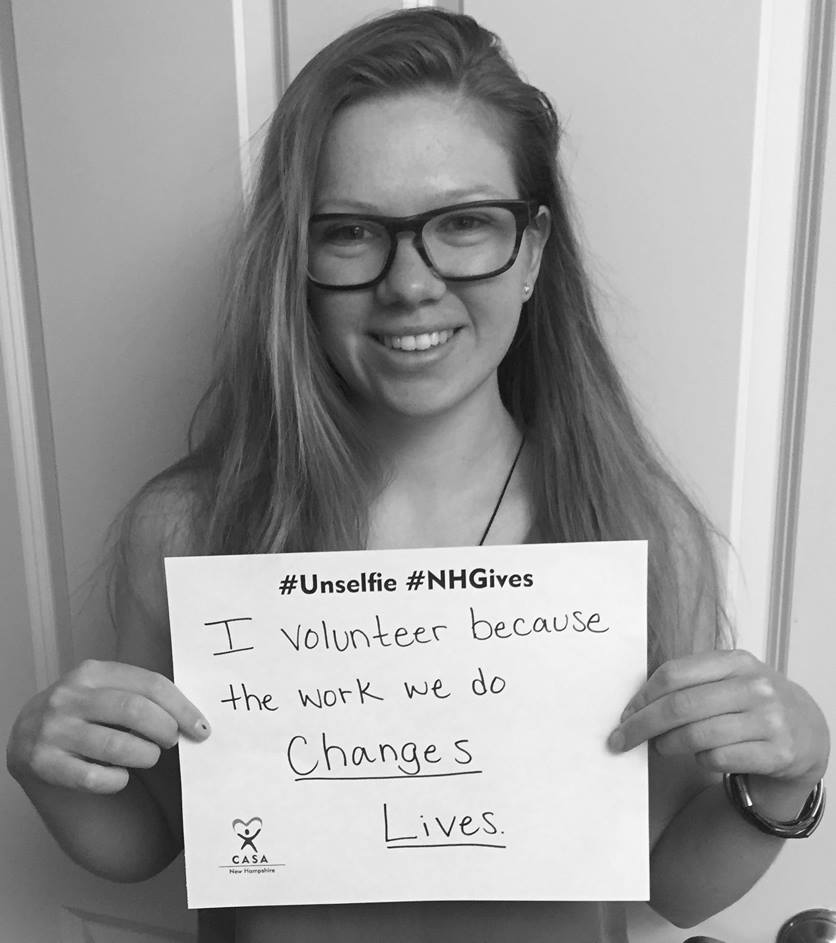 #Unselfie #NHGives
I volunteer because
the work we do
Changes
Lives.
CASA
New Hampshire